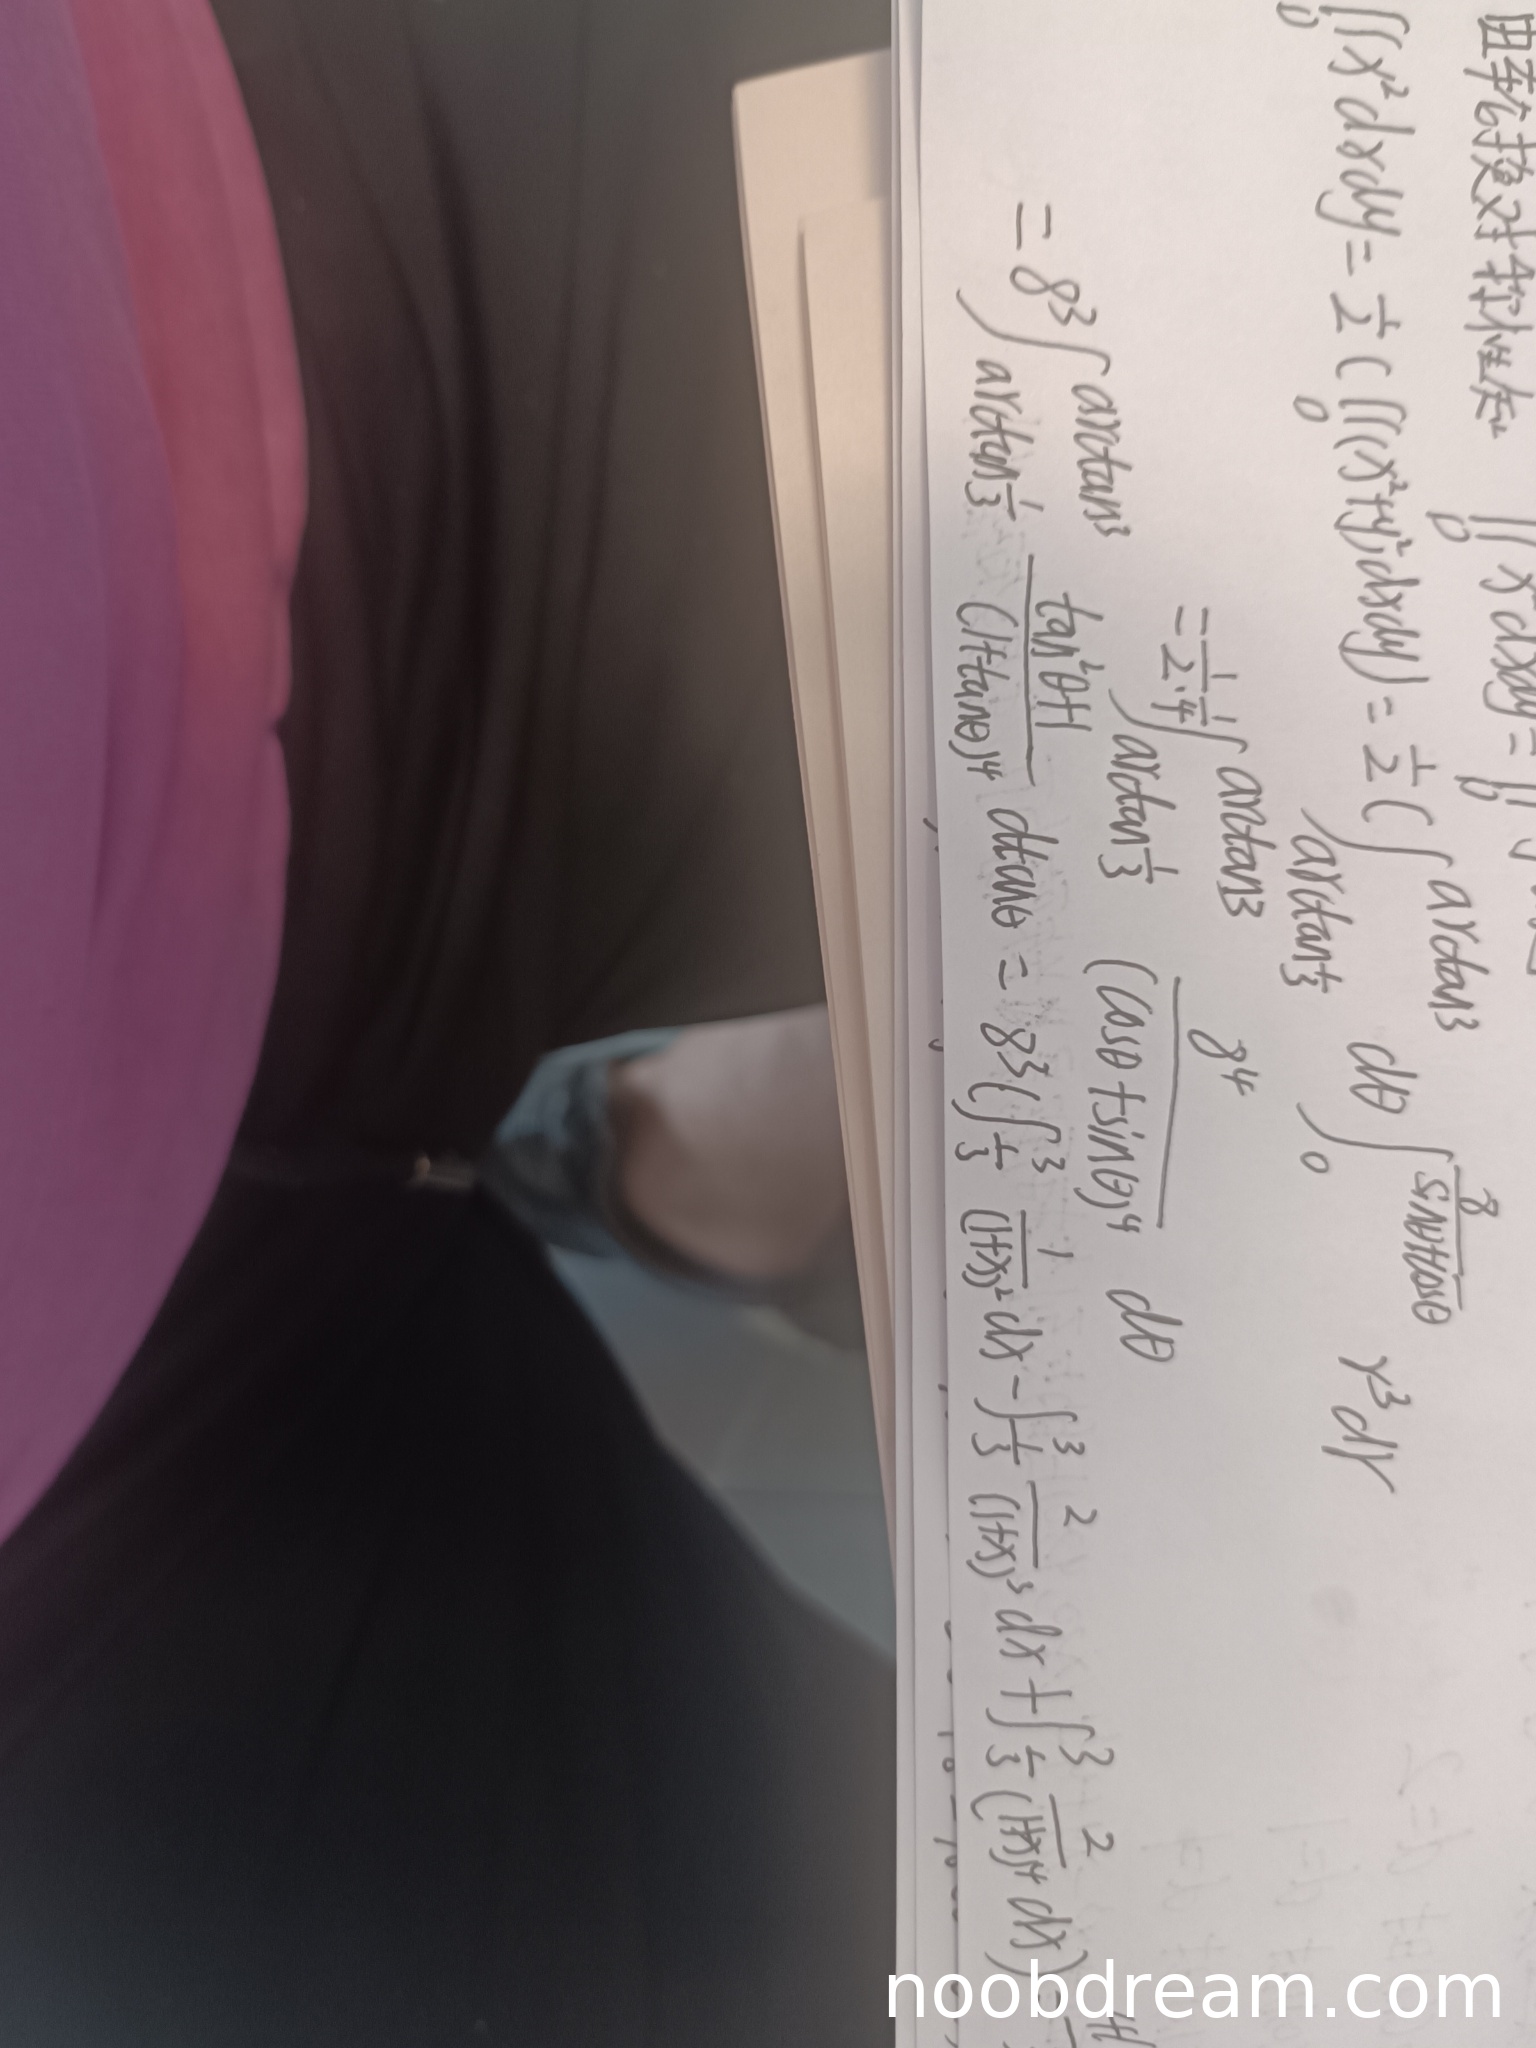 由轮换对称性知 ∬_D x²dxdy = ∬_D
∬_D x²dxdy = 1/2 (∬_D (x²+y²)dxdy) = 1/2 (∫_{arctan1/3}^{arctan3} dθ ∫_0^{8/(sinθ+cosθ)} r³dr
= 1/2·1/4 ∫_{arctan1/3}^{arctan3} 8⁴/(cosθ+sinθ)⁴ dθ
= 8³ ∫_{arctan1/3}^{arctan3} (tan²θ+1)/(1+tanθ)⁴ dtanθ = 8³(∫_{1/3}^3 1/(1+x)² dx - ∫_{1/3}^3 2/(1+x)³ dx + ∫_{1/3}^3 2/(1+x)⁴ dx) =
noobdream.com